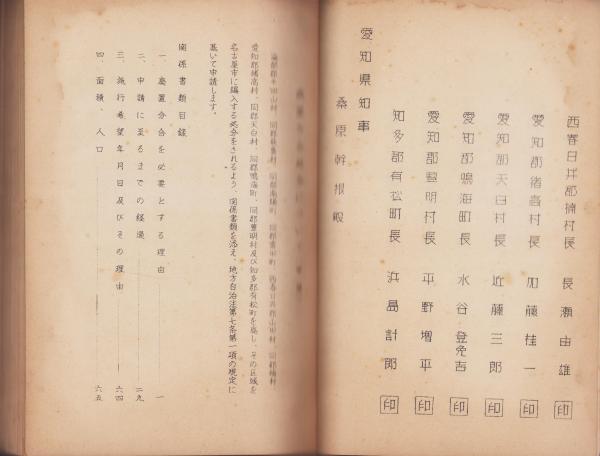 西春日井郡楠村長　長瀬由雄　印
愛知郡猪高村長　加藤桂一　印
愛知郡天白村長　近藤三郎　印
愛知郡鳴海町長　水谷登免吉　印
愛知郡豊明村長　平野増平　印
知多郡有松町長　浜島計郎　印
愛知県知事
桑原幹根殿
愛知郡猪高村、同郡天白村、同郡鳴海町、同郡豊明村及び知多郡有松町を廃し、その区域を
名古屋市に編入する処分をされるよう、関係書類を添え、地方自治法第七条第一項の規定に
基いて申請します。
関係書類目録
一、廃置分合を必要とする理由　一
二、申請に至るまでの経過　二九
三、施行希望年月日及びその理由　六四
四、面積、人口　六五